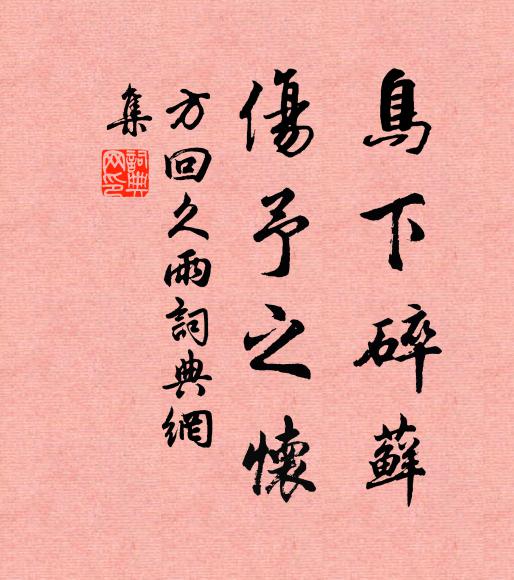 鳥下碎蘚
傷予之懷
方回久雨詞典網
集
詞典
网印